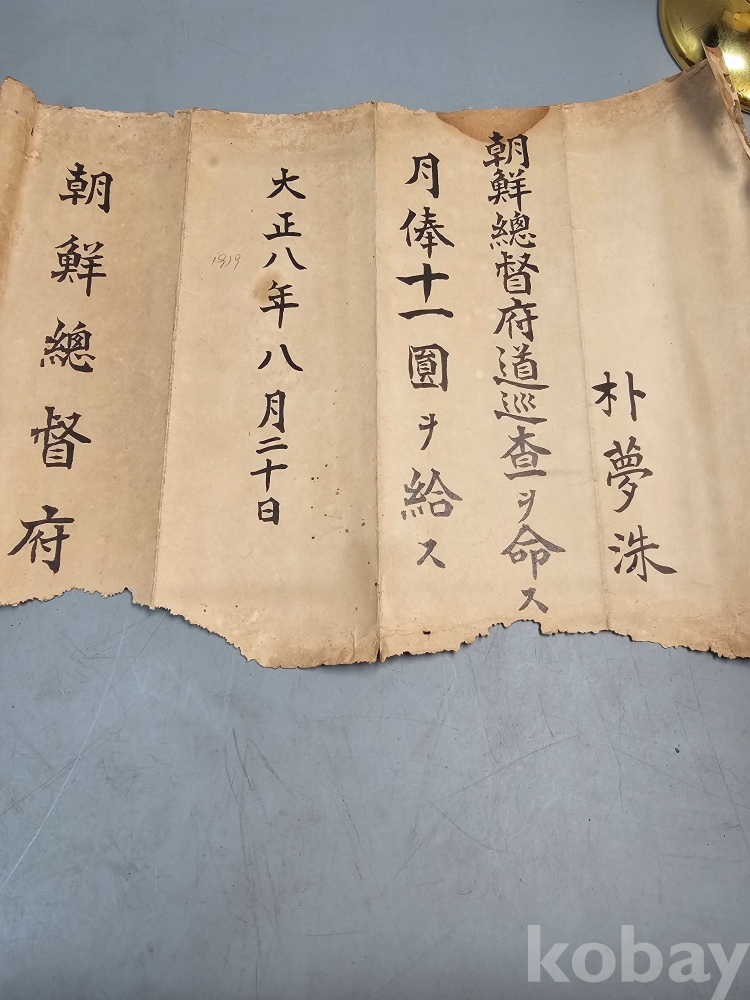 朴夢洙
朝鮮總督府道巡査ヲ命ス
月俸十一圓ヲ給ス
大正八年八月二十日
1919
朝鮮總督府
kobay